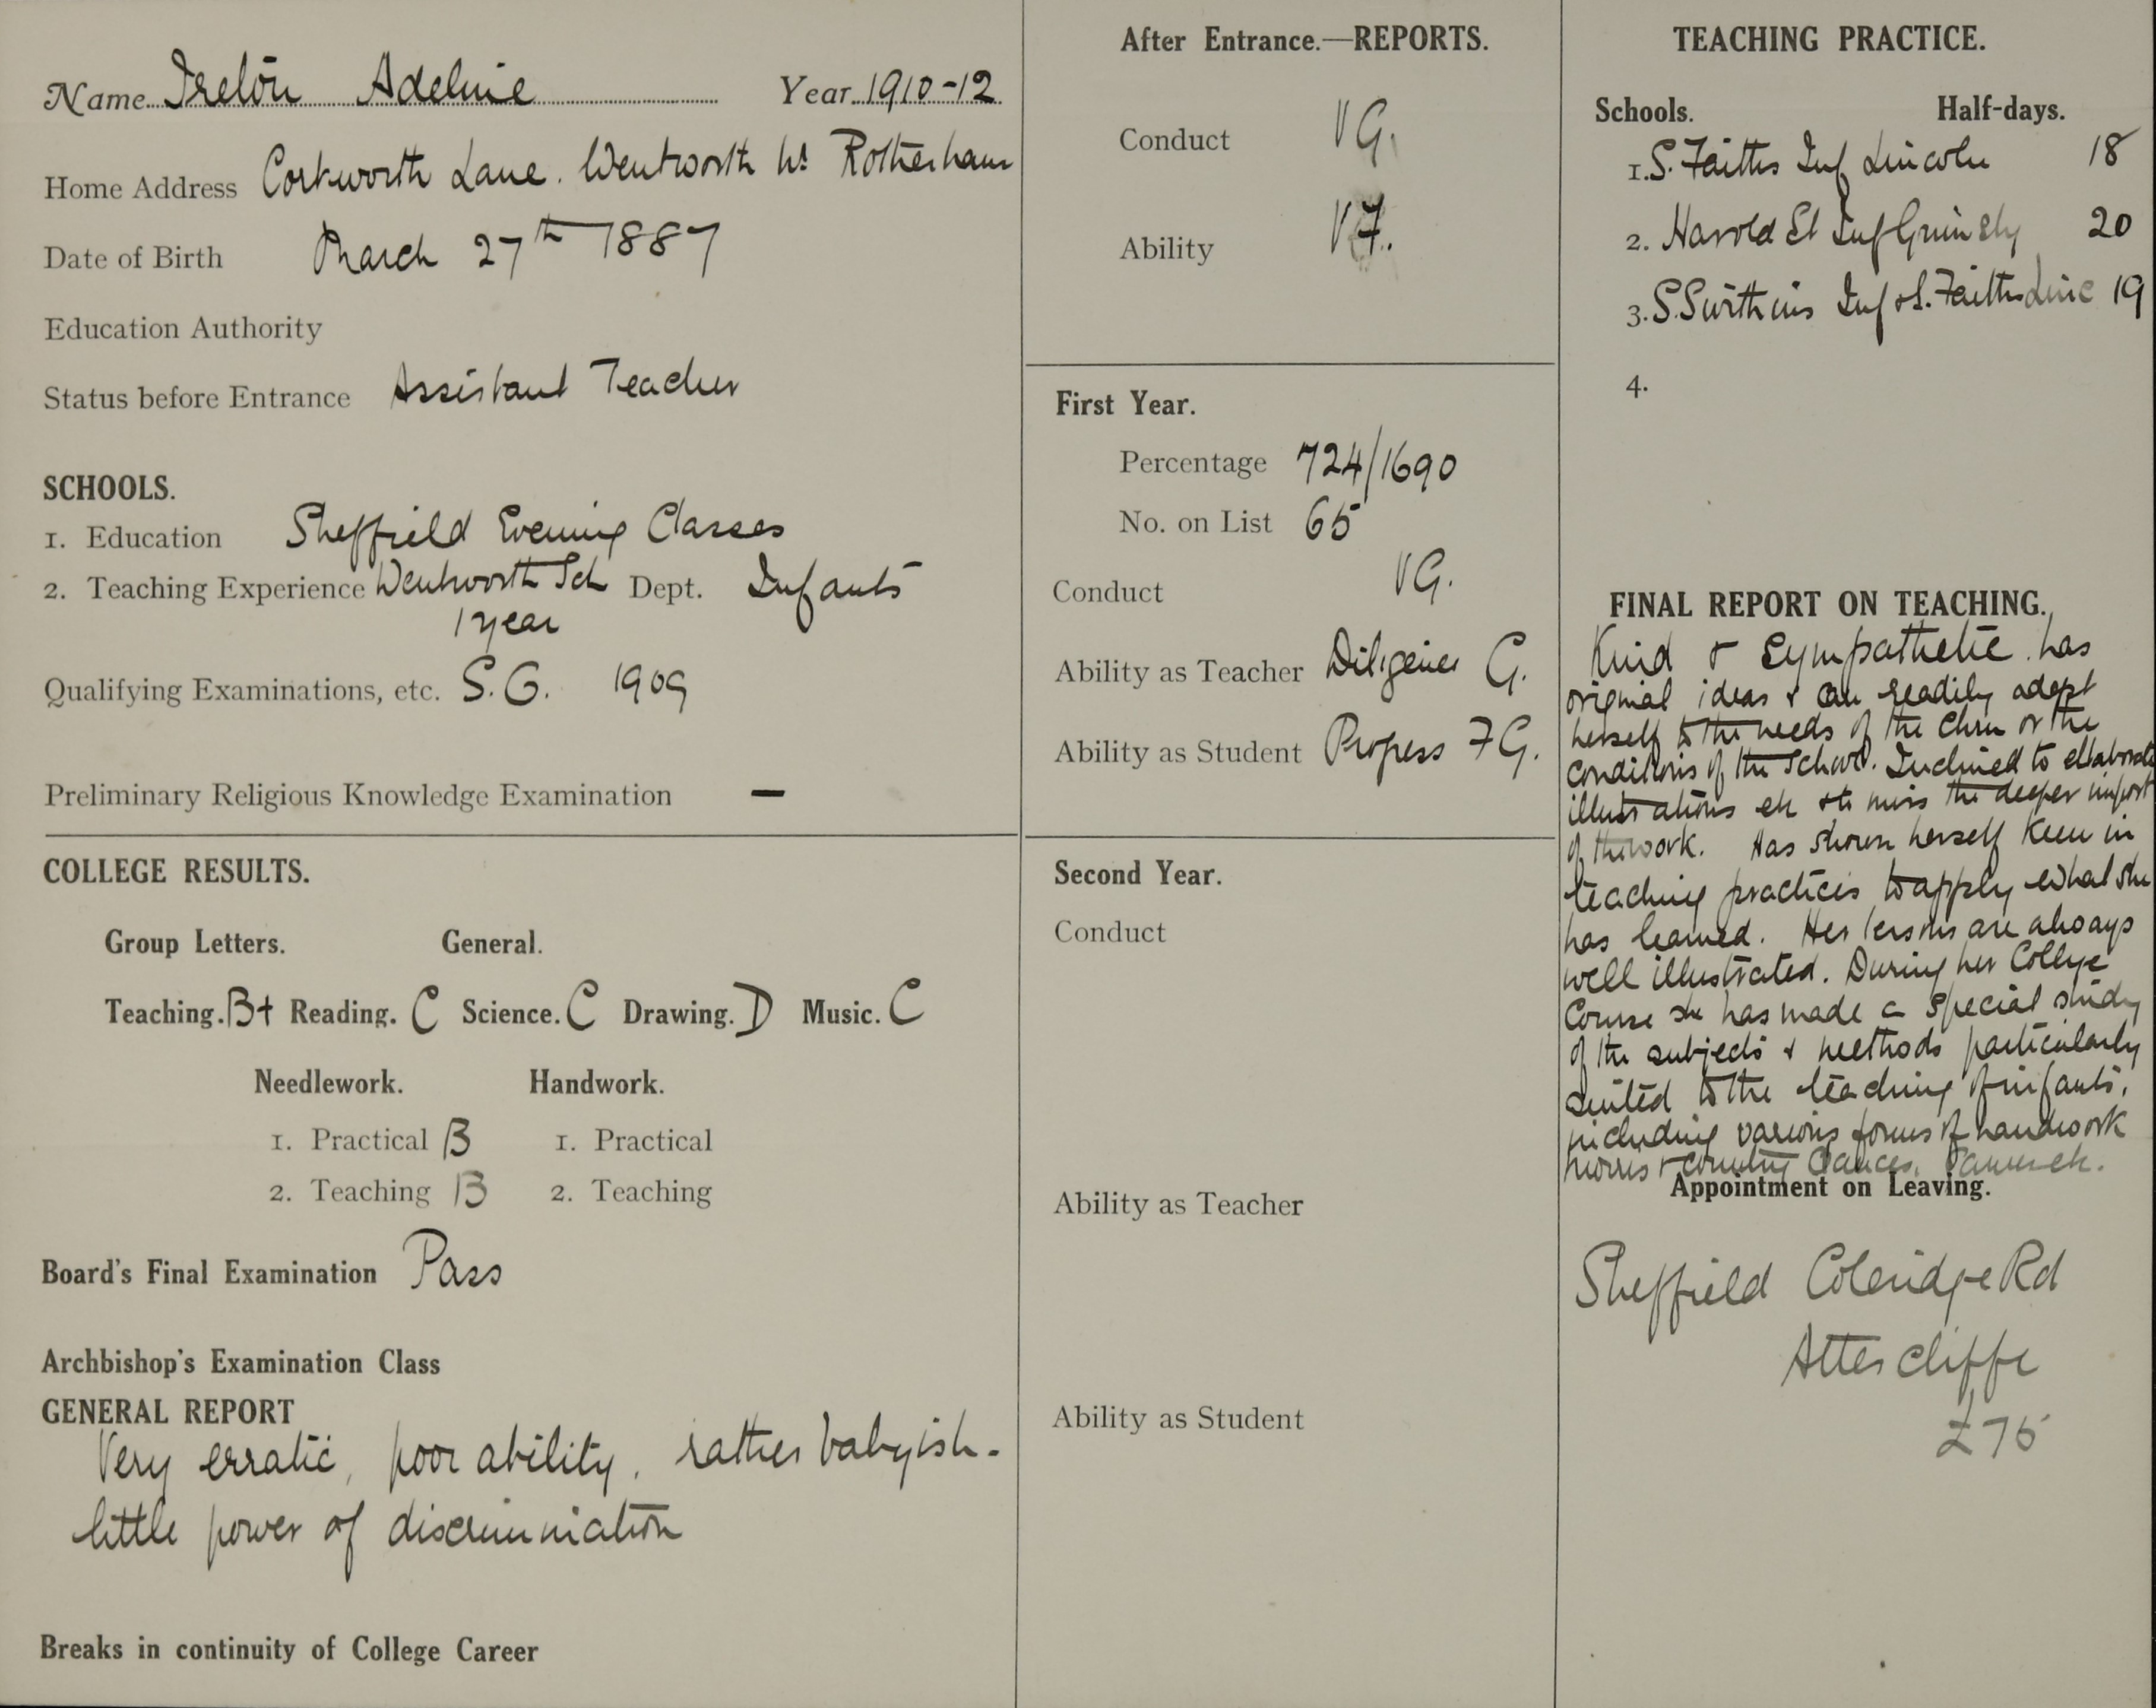 Name Irelon Adeline Year 1910-12
Home Address Cortworth Lane. Wentworth Nr Rotherham
Date of Birth March 27th 1887
Education Authority
Status before Entrance Assistant Teacher
SCHOOLS.
1. Education Sheffield Evening Classes
2. Teaching Experience Wentworth Sch Dept. Infants
1 year
Qualifying Examinations, etc. S.G. 1909
Preliminary Religious Knowledge Examination —
COLLEGE RESULTS.
Group Letters. General.
Teaching. B+ Reading. C Science. C Drawing. D Music. C
Needlework. Handwork.
1. Practical B 1. Practical
2. Teaching B 2. Teaching
Board's Final Examination Pass
Archbishop's Examination Class
GENERAL REPORT
Very erratic, poor ability, rather babyish -
little power of discrimination
Breaks in continuity of College Career
After Entrance.—REPORTS.
Conduct VG.
Ability VF.
First Year.
Percentage 724/1690
No. on List 65
Conduct VG.
Ability as Teacher Diligence G.
Ability as Student Progress FG.
Second Year.
Conduct
Ability as Teacher
Ability as Student
TEACHING PRACTICE.
Schools. Half-days.
1. S. Faiths Inf Lincoln 18
2. Harold St Inf Grimsby 20
3. S Swithins Inf & S. Faiths Linc 19
4.
FINAL REPORT ON TEACHING.
Kind & Sympathetic. has
original ideas & can readily adapt
herself to the needs of the Chrn or the
conditions of the School. Inclined to ellaborate
illustrations etc & to miss the deeper import
of the work. Has shown herself keen in
teaching practices to apply what she
has learned. Her lessons are always
well illustrated. During her College
Course she has made a special study
of the subjects & methods particularly
suited to the teaching of infants,
including various forms of handwork
morris & country dances, games etc.
Appointment on Leaving.
Sheffield Coleridge Rd
Attercliffe
£75